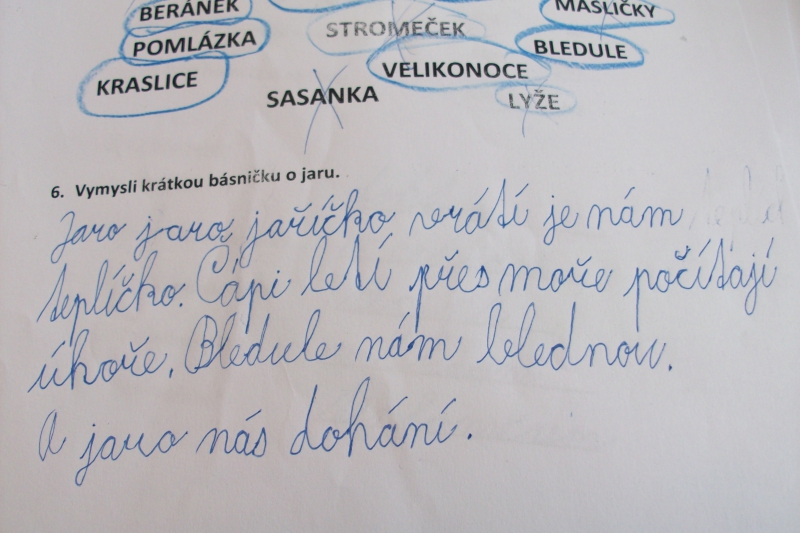 BERÁNEK
MAŠLIČKY
STROMEČEK
POMLÁZKA
BLEDULE
VELIKONOCE
KRASLICE
SASANKA
LYŽE
6. Vymysli krátkou básničku o jaru.
Jaro jaro, jaříčko vrátí je nám
teplíčko. Čápi letí přes moře počítají
úhoře. Bledule nám blednou.
A jaro nás dohání.